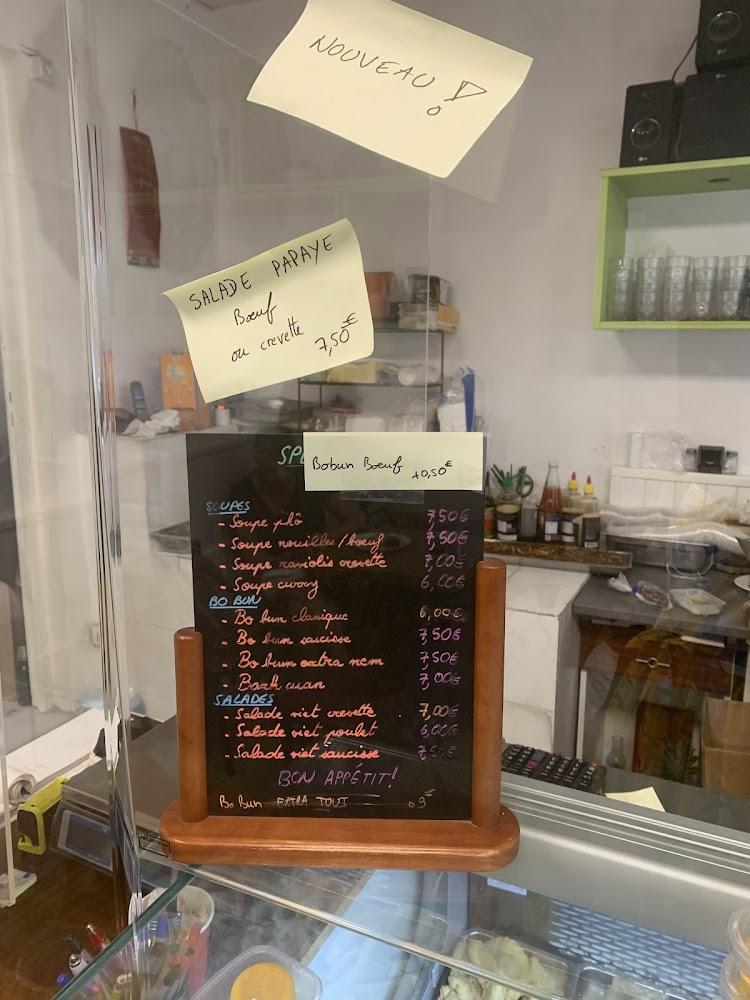 NOUVEAU !
SALADE PAPAYE
Bœuf
ou crevette 7,50€
Bobun Boeuf +0,50€
SOUPES
- Soupe phô 7,50€
- Soupe nouilles/boeuf 7,50€
- Soupe raviolis crevette 7,00€
- Soupe curry 6,00€
BO BUN
- Bo bun classique 6,00€
- Bo bun saucisse 7,50€
- Bo bun extra nem 7,50€
- Banh cuan 7,00€
SALADES
- Salade viet crevette 7,00€
- Salade viet poulet 6,00€
- Salade viet saucisse 7,50€
BON APPÉTIT!
Bo Bun EXTRA TOUT 9€
LG